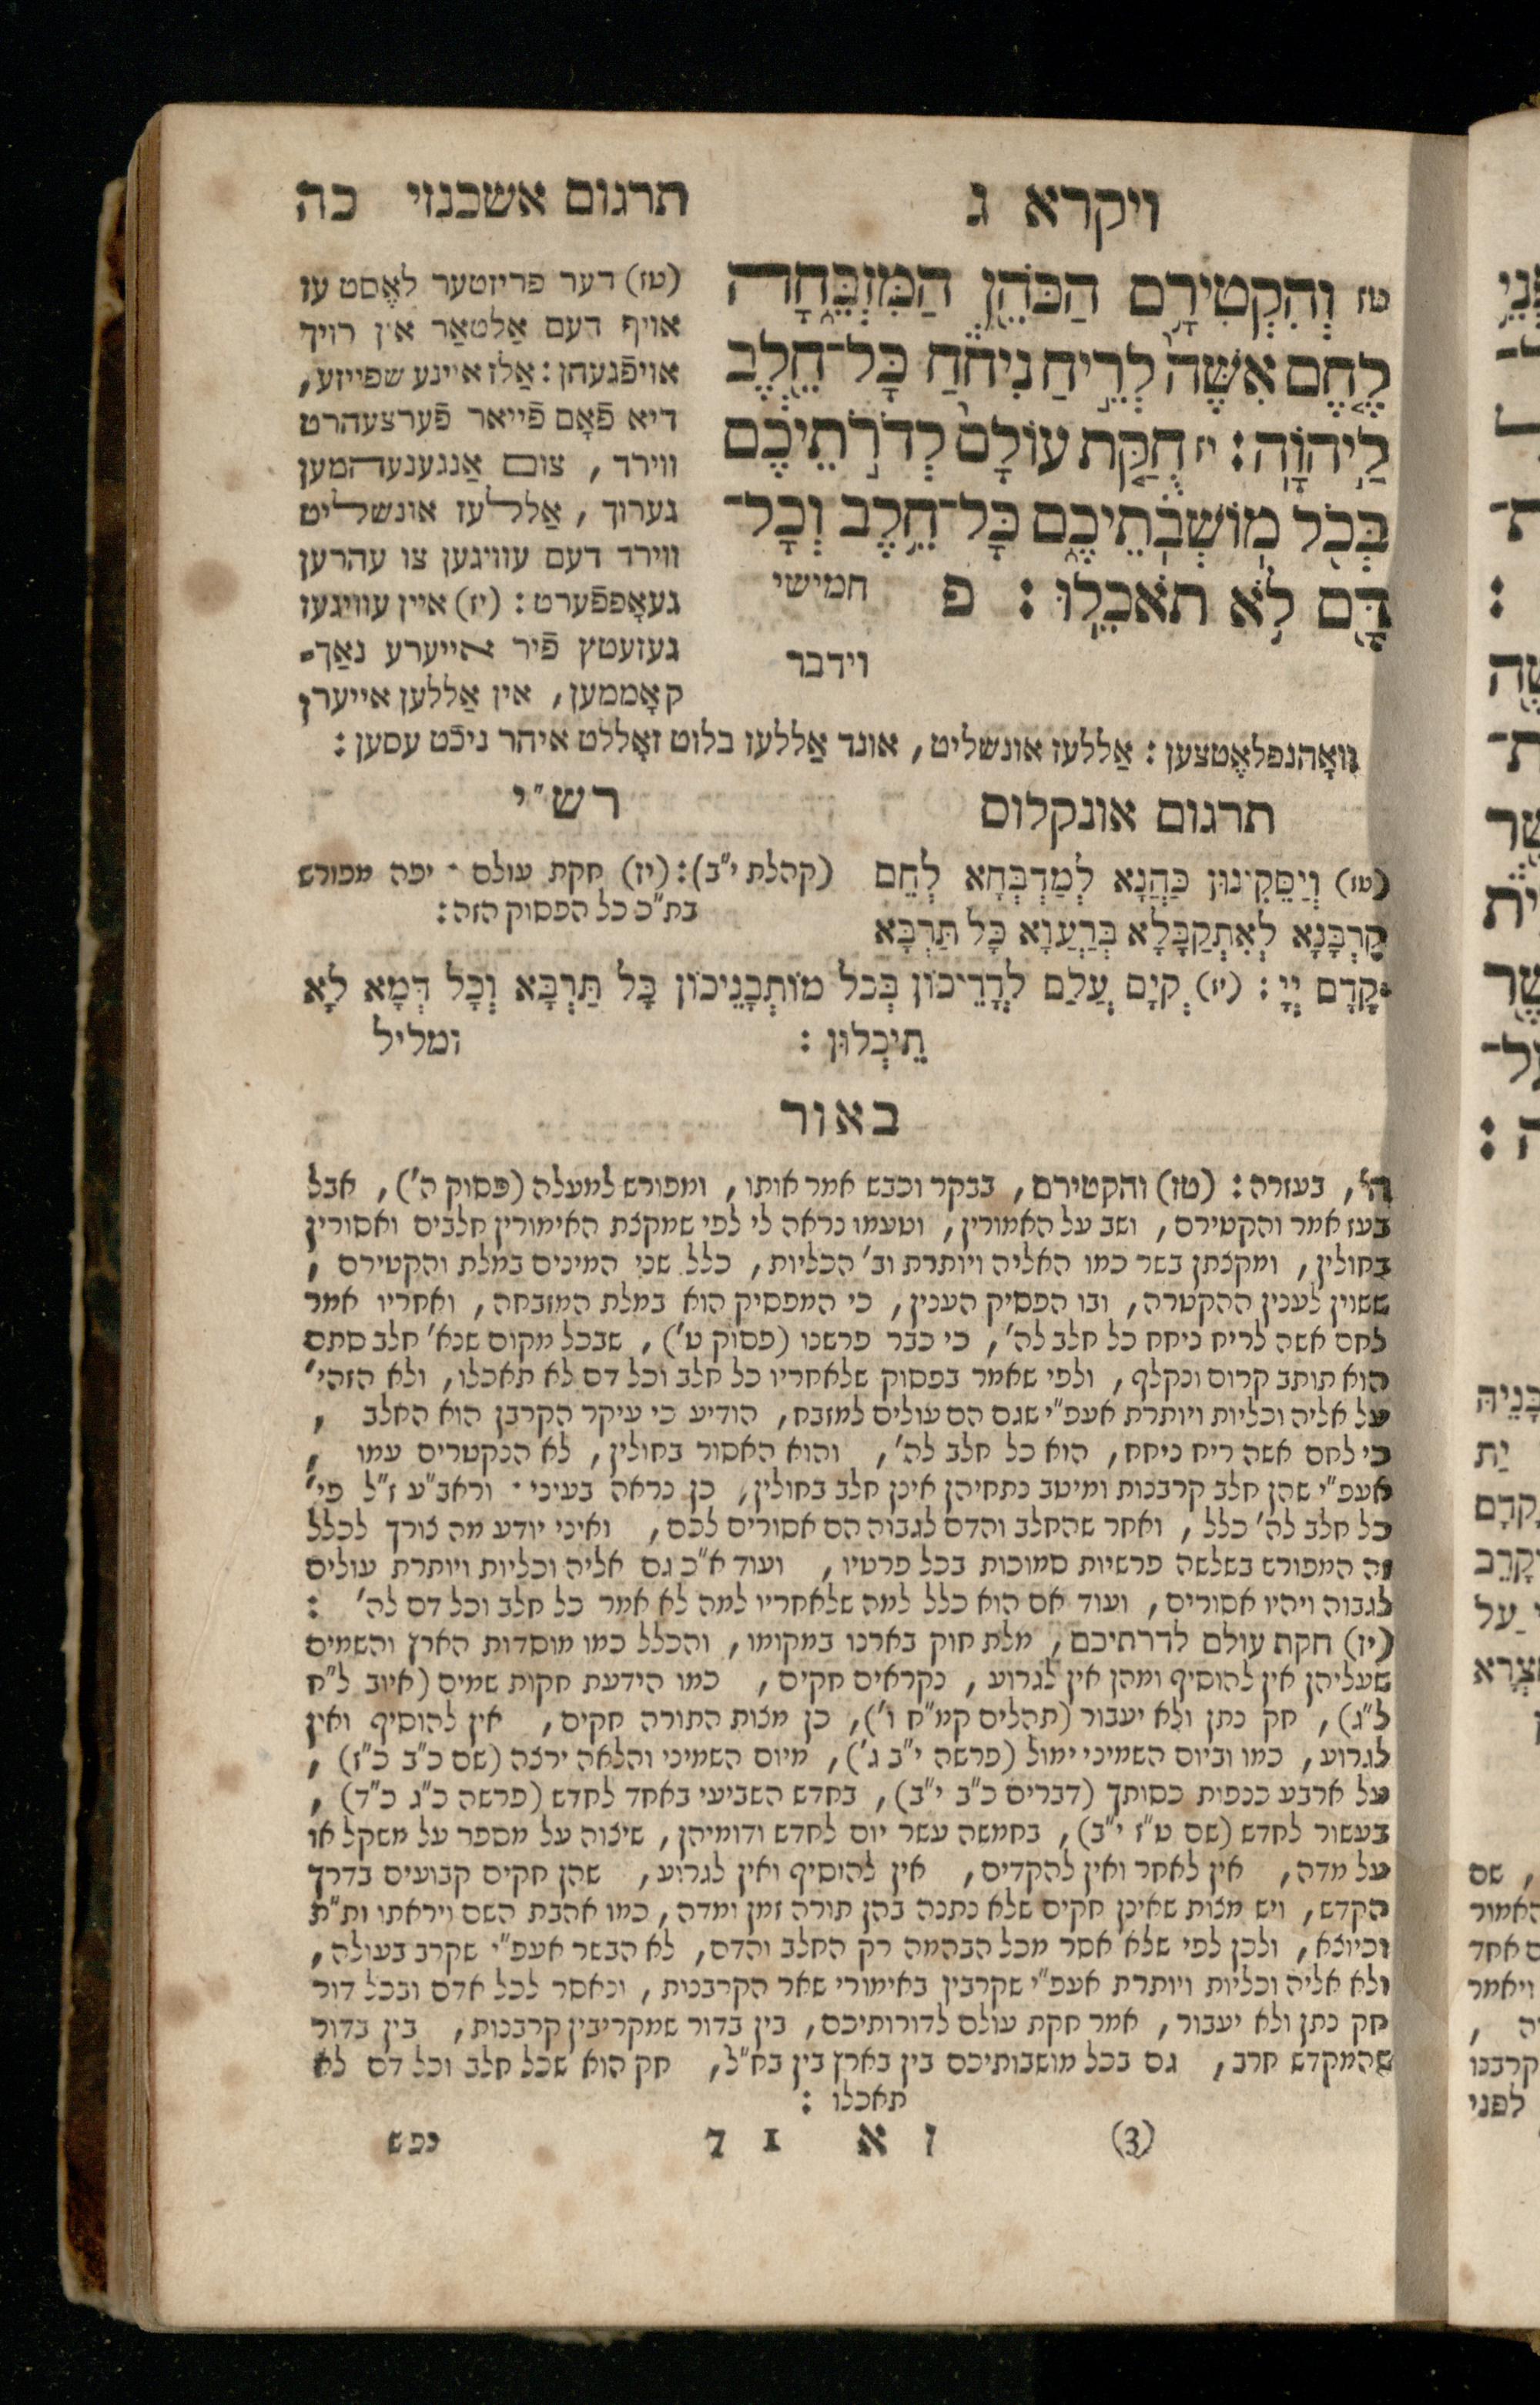 ויקרא ג
תרגום אשכנזי כה
טז וְהִקְטִירָ֥ם הַכֹּהֵ֖ן הַמִּזְבֵּ֑חָה
לֶ֤חֶם אִשֶּׁה֙ לְרֵ֣יחַ נִיחֹ֔חַ כָּל־חֵ֖לֶב
לַיהוָֽה׃ יז חֻקַּ֤ת עוֹלָם֙ לְדֹרֹ֣תֵיכֶ֔ם
בְּכֹ֖ל מֽוֹשְׁבֹֽתֵיכֶ֑ם כָּל־חֵ֥לֶב וְכָל־
דָּ֖ם לֹ֥א תֹאכֵֽלוּ׃ פ חמישי
וידבר
(טז) דער פריזטער לאֶסט עז
אויף דעם אַלטאַר אין רויך
אויפֿגעהן: אַלז איינע שפייזע,
דיא פֿאָם פֿייאר פֿערצעהרט
ווירד, צום אַנגענעהמען
גערוך, אַללעז אונשליט
ווירד דעם עוויגען צו עהרען
געאָפפֿערט: (יז) איין עוויגעז
געזעטץ פֿיר אייערע נאַך־
קאָממען, אין אַללען אייערן
וואָהנפלאֶטצען: אַללעז אונשליט, אונד אַללעז בלוט זאָללט איהר ניכֿט עסען:
תרגום אונקלוס
(טז) וְיַסֵּקִינוּן כַּהֲנָא לְמַדְבְּחָא לְחֵם
קָרְבָּנָא לְאִתְקַבָּלָא בְּרַעֲוָא כָּל תַּרְבָּא
קֳדָם יְיָ: (יז) קְיָם עֲלַם לְדָרֵיכוֹן בְּכל מוֹתְבָנֵיכוֹן כָּל תַּרְבָּא וְכָל דְּמָא לָא
תֵיכְלוּן:
ומליל
רש״י
(קהלת י״ב): (יז) חקת עולם · יפה מפורש
בת״כ כל הפסוק הזה:
באור
ה׳, בעזרה: (טז) והקטירם, בבקר וכבש אמר אותו, ומפורש למעלה (פסוק ה׳), אבל
בעז אמר והקטירם, ושב על האמורין, וטעמו נראה לי לפי שמקצת האימורין חלבים ואסורין
בחולין, ומקצתן בשר כמו האליה ויותרת וב׳ הכליות, כלל שני המינים במלת והקטירם,
ששוין לענין ההקטרה, ובו הפסיק הענין, כי המפסיק הוא במלת המזבחה, ואחריו אמר
לחם אשה לריח ניחח כל חלב לה׳, כי כבר פרשנו (פסוק ט׳), שבכל מקום שנא׳ חלב סתם
הוא תותב קרום ונקלף, ולפי שאמר בפסוק שלאחריו כל חלב וכל דם לא תאכלו, ולא הזהי׳
על אליה וכליות ויותרת אעפ״י שגם הם עולים למזבח, הודיע כי עיקר הקרבן הוא החלב,
כי לחם אשה ריח ניחח, הוא כל חלב לה׳, והוא האסור בחולין, לא הנקטרים עמו,
אעפ״י שהן חלב קרבנות ומיטב נתחיהן אינן חלב בחולין, כן נראה בעיני · וראב״ע ז״ל פי׳
כל חלב לה׳ כלל, ואחר שהחלב והדם לגבוה הם אסורים לכם, ואיני יודע מה צורך לכלל
זה המפורש בשלשה פרשיות סמוכות בכל פרטיו, ועוד א״כ גם אליה וכליות ויותרת עולים
לגבוה ויהיו אסורים, ועוד אם הוא כלל למה שלאחריו למה לא אמר כל חלב וכל דם לה׳:
(יז) חקת עולם לדרתיכם, מלת חוק בארנו במקומו, והכלל כמו מוסדות הארץ והשמים
שעליהן אין להוסיף ומהן אין לגרוע, נקראים חקים, כמו הידעת חקות שמים (איוב ל״ח
ל״ג), חק נתן ולא יעבור (תהלים קמ״ח ו׳), כן מצות התורה חקים, אין להוסיף ואין
לגרוע, כמו וביום השמיני ימול (פרשה י״ב ג׳), מיום השמיני והלאה ירצה (שם כ״ב כ״ז),
על ארבע כנפות כסותך (דברים כ״ב י״ב), בחדש השביעי באחד לחדש (פרשה כ״ג כ״ד),
בעשור לחדש (שם ט״ז י״ב), בחמשה עשר יום לחדש ודומיהן, שיצוה על מספר על משקל או
על מדה, אין לאחר ואין להקדים, אין להוסיף ואין לגרוע, שהן חקים קבועים בדרך
הקדש, ויש מצות שאינן חקים שלא נתנה בהן תורה זמן ומדה, כמו אהבת השם ויראתו ות״ת
וכיוצא, ולכן לפי שלא אסר מכל הבהמה רק החלב והדם, לא הבשר אעפ״י שקרב בעולה,
ולא אליה וכליות ויותרת אעפ״י שקרבין באימורי שאר הקרבנות, ונאסר לכל אדם ובכל דור
חק נתן ולא יעבור, אמר חקת עולם לדורותיכם, בין בדור שמקריבין קרבנות, בין בדור
שהמקדש חרב, גם בכל מושבותיכם בין בארץ בין בח״ל, חק הוא שכל חלב וכל דם לא
תאכלו:
(3) ז א 1 7 נפש